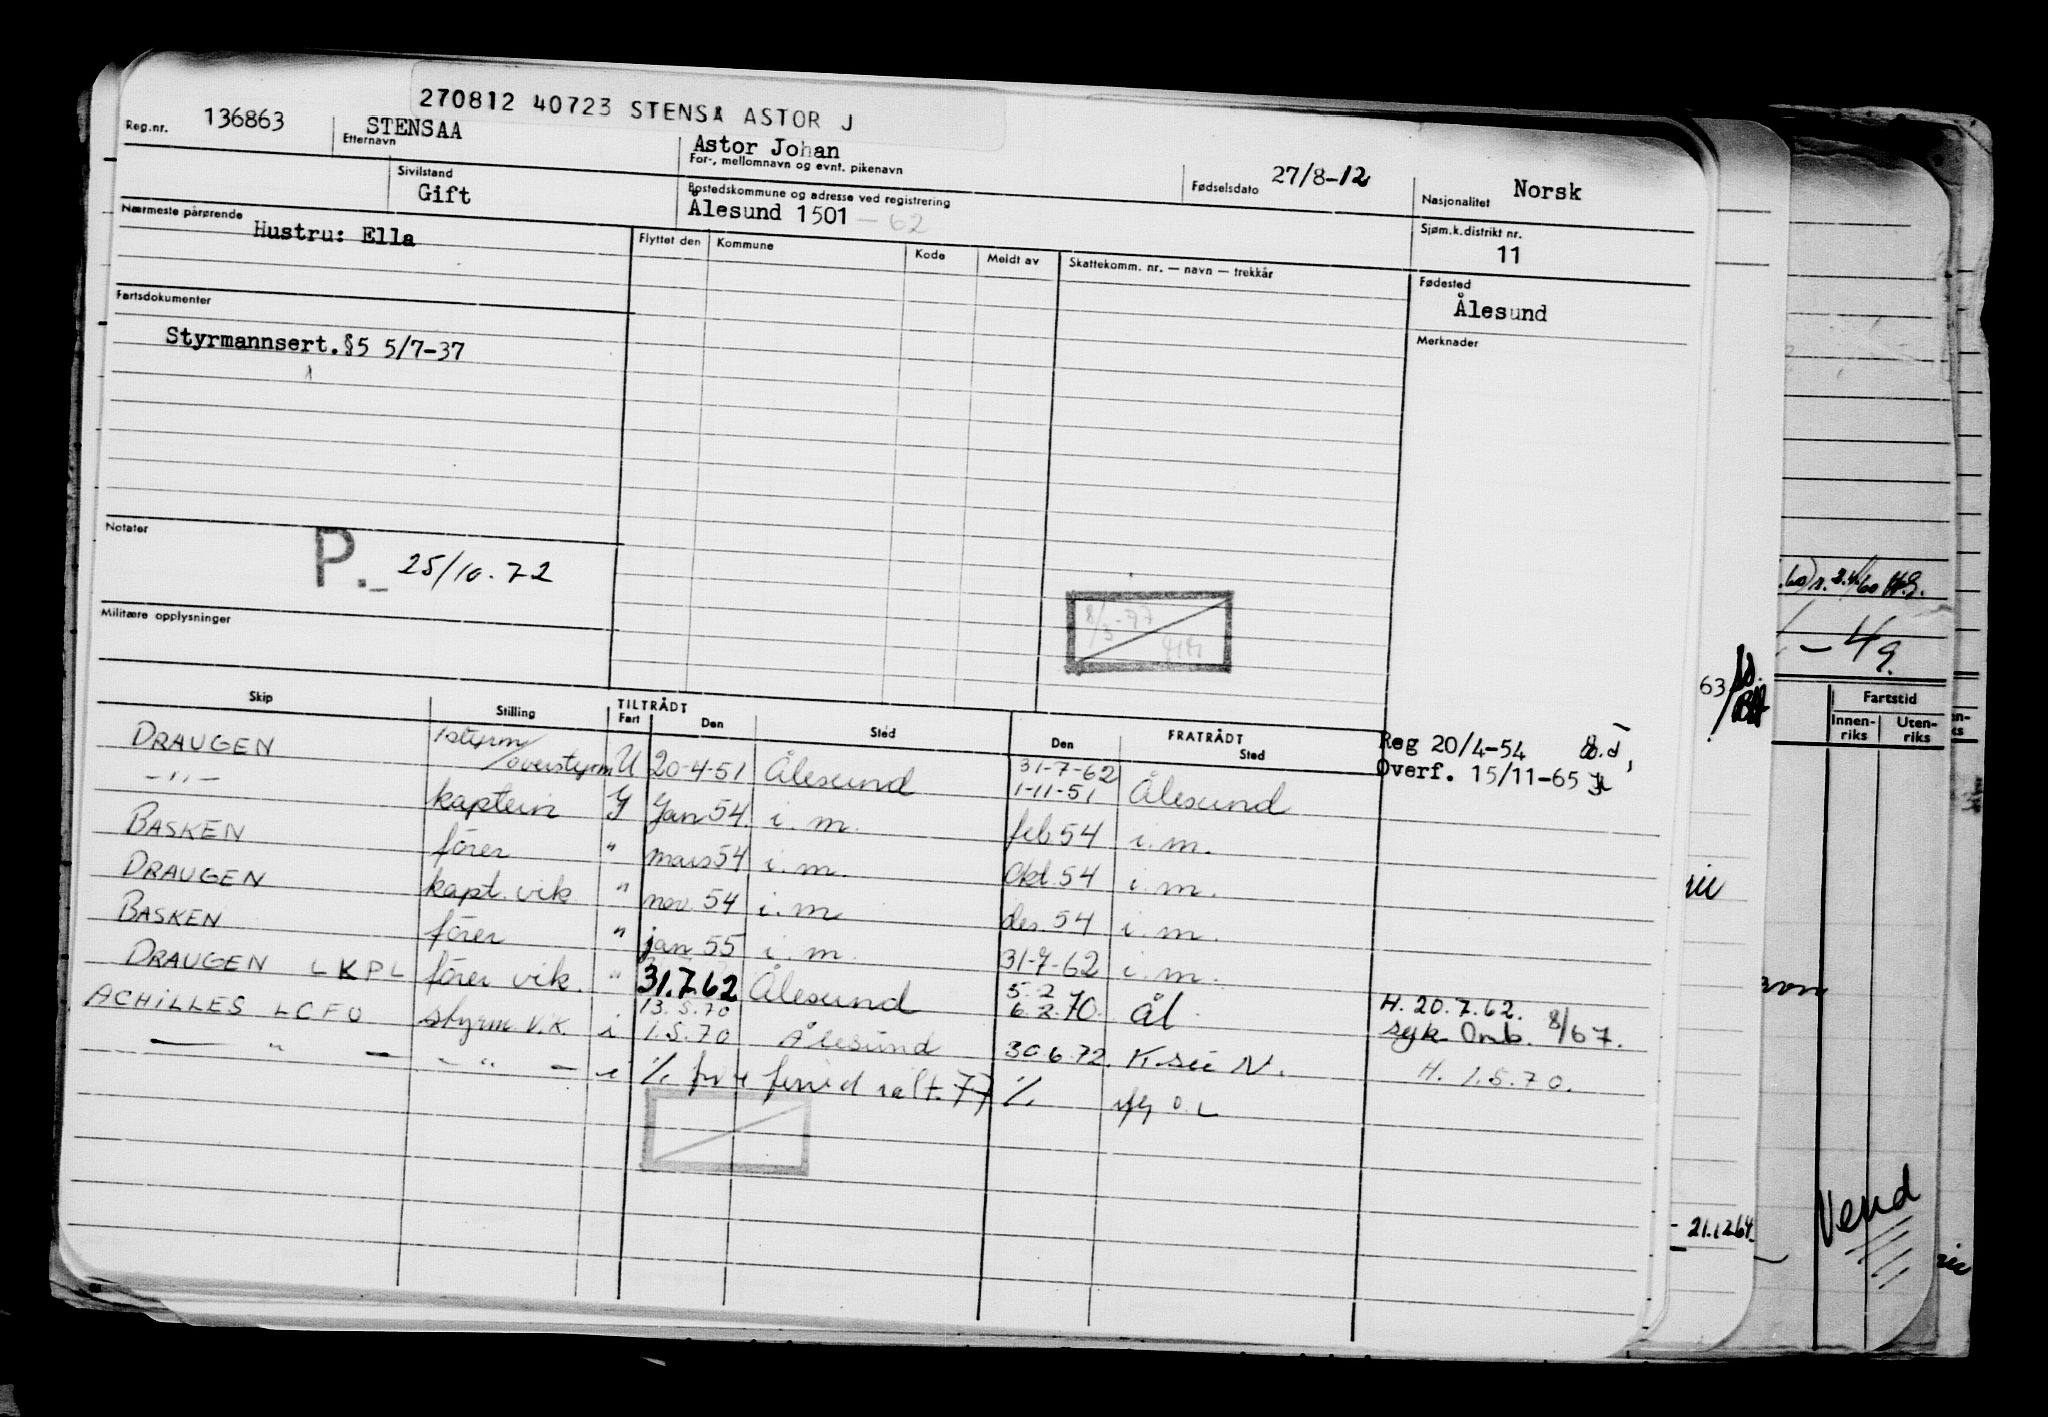 270812 40723 STENSÅ ASTOR J
Reg.nr. 136863
STENSAA
Etternavn
Astor Johan
For-, mellomnavn og evnt. pikenavn
Fødselsdato 27/8-12
Nasjonalitet Norsk
Sivilstand
Gift
Bostedskommune og adresse ved registrering
Ålesund 1501 - 62
Sjøm.k.distrikt nr.
11
Nærmeste pårørende
Hustru: Ella
Flyttet den Kommune Kode Meldt av Skattekomm. nr. — navn — trekkår
Fødested
Ålesund
Fartsdokumenter
Styrmannsert.§5 5/7-37
Merknader
Notater
P. 25/10.72
8/3-77
Militære opplysninger
Skip Stilling TILTRÅDT Fart Den Sted FRATRÅDT Den Sted
Reg 20/4-54
Overf. 15/11-65
DRAUGEN 1styrm/overstyrm U 20-4-51 Ålesund 31-7-62 1-11-51 Ålesund
-"- kaptein Y Jan 54. i.m. feb 54 i.m.
BASKEN fører " mars 54 i.m. Okt 54 i.m.
DRAUGEN kapt. vik " nov. 54 i.m des. 54 i.m.
BASKEN fører " jan 55 i.m. 31-7-62 i.m.
DRAUGEN LKPL fører vik. " 31.7.62 Ålesund 5.2 6.2.70. Ål H. 20.7.62.
syk Omb. 8/67.
ACHILLES LCFO styrm V.K. i 13.5.70 1.5.70 Ålesund 30.6.72. K.sü N. H. 1.5.70.
— " — - " — i
77
63
- 4/9
Fartstid
Innen-riks Uten-riks
21.1264
Vend